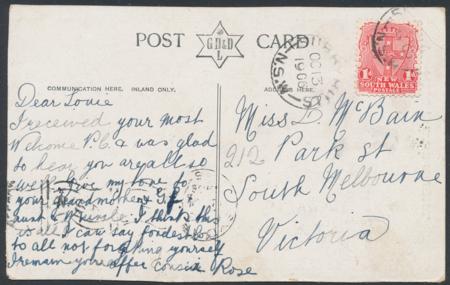 POST CARD
G D & D
L
COMMUNICATION HERE. INLAND ONLY.
ADDRESS HERE.
NEW
SOUTH WALES
POSTAGE
1d
OC 13
N.S.W
Dear Louie
I received your most
Welcome P.C. & was glad
to hear you are all so
well Give my love to
your grandmother
aunt & uncle. I think this
is all I can say fondest love
to all not forgetting yourself
I remain your affec cousin Rose
Miss L McBain
212
Park St
South Melbourne
Victoria